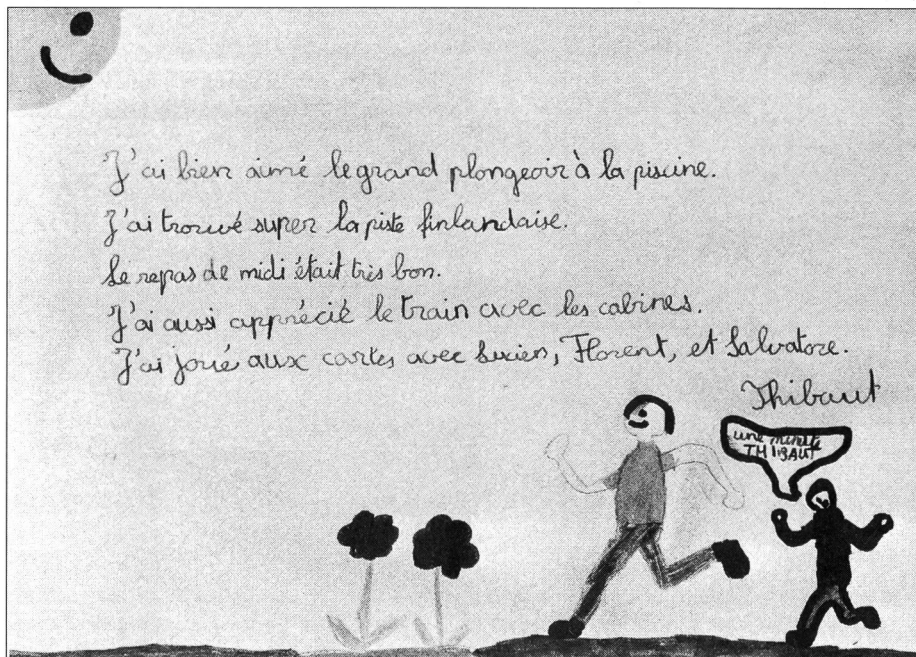 J'ai bien aimé le grand plongeoir à la piscine.
J'ai trouvé super la piste finlandaise.
Le repas de midi était très bon.
J'ai aussi apprécié le train avec les cabines.
J'ai joué aux cartes avec Lucien, Florent, et Salvatore.
Thibaut
une minute
THIBAUT